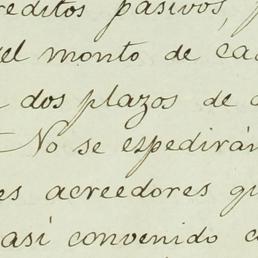 réditos pasivos,
el monto de ca
dos plazos de
No se espedirán
es acreedores qu
así convenido c